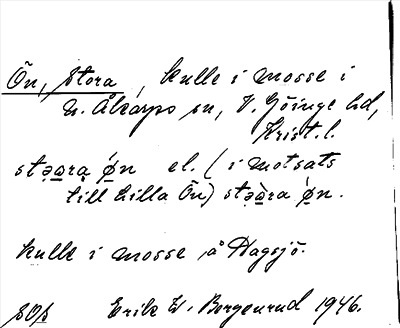 Ön, Stora, kulle i mosse i
N. Åkarps sn, V. Göinge hd,
Krist. l.
stǫara ǿn el. (i motsats
till Lilla Ön) stǫ̀ara ǿn.
kulle i mosse å Hagsjö.
Erik W. Borgenrud 1946.